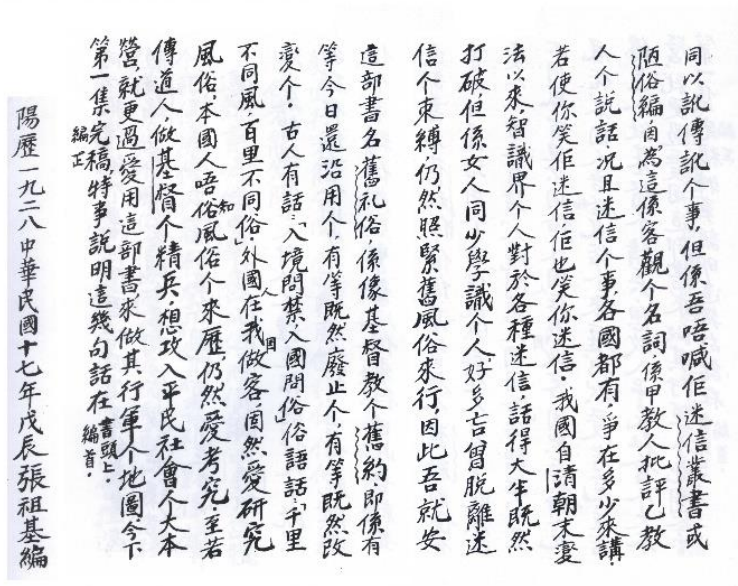 同以訛傳訛个事，但係吾唔喊佢迷信叢書或
陋俗編，因為這係客觀个名詞，係甲教人批評乙教
人个説話，况且迷信个事，各國都有，爭在多少來講，
若使你笑佢迷信，佢也笑你迷信。我國自清朝末变
法以來，智識界个人對於各種迷信，話得大半既然
打破但係女人同少學識个人，好多言曾脱離迷
信个束縛，仍然照緊舊風俗來行，因此吾就安
這部書名舊礼俗，係像基督教个舊約，即係有
等今日還沿用个，有等既然廢止个，有等既然改
変个。古人有話：「入境問禁，入國問俗」俗語話：「千里
不同風，百里不同俗」，外國人在我國做客，固然愛研究
風俗，本國人唔知俗風俗个來歷，仍然愛考究，至若
傳道人，做基督个精兵，想攻入平民社會个大本
營，就更過愛用這部書來做其行軍个地圖今下
第一集完稿，特事説明這幾句話在書頭上，
編正
編首。
陽歷一九二八中華民國十七年戊辰張祖基編